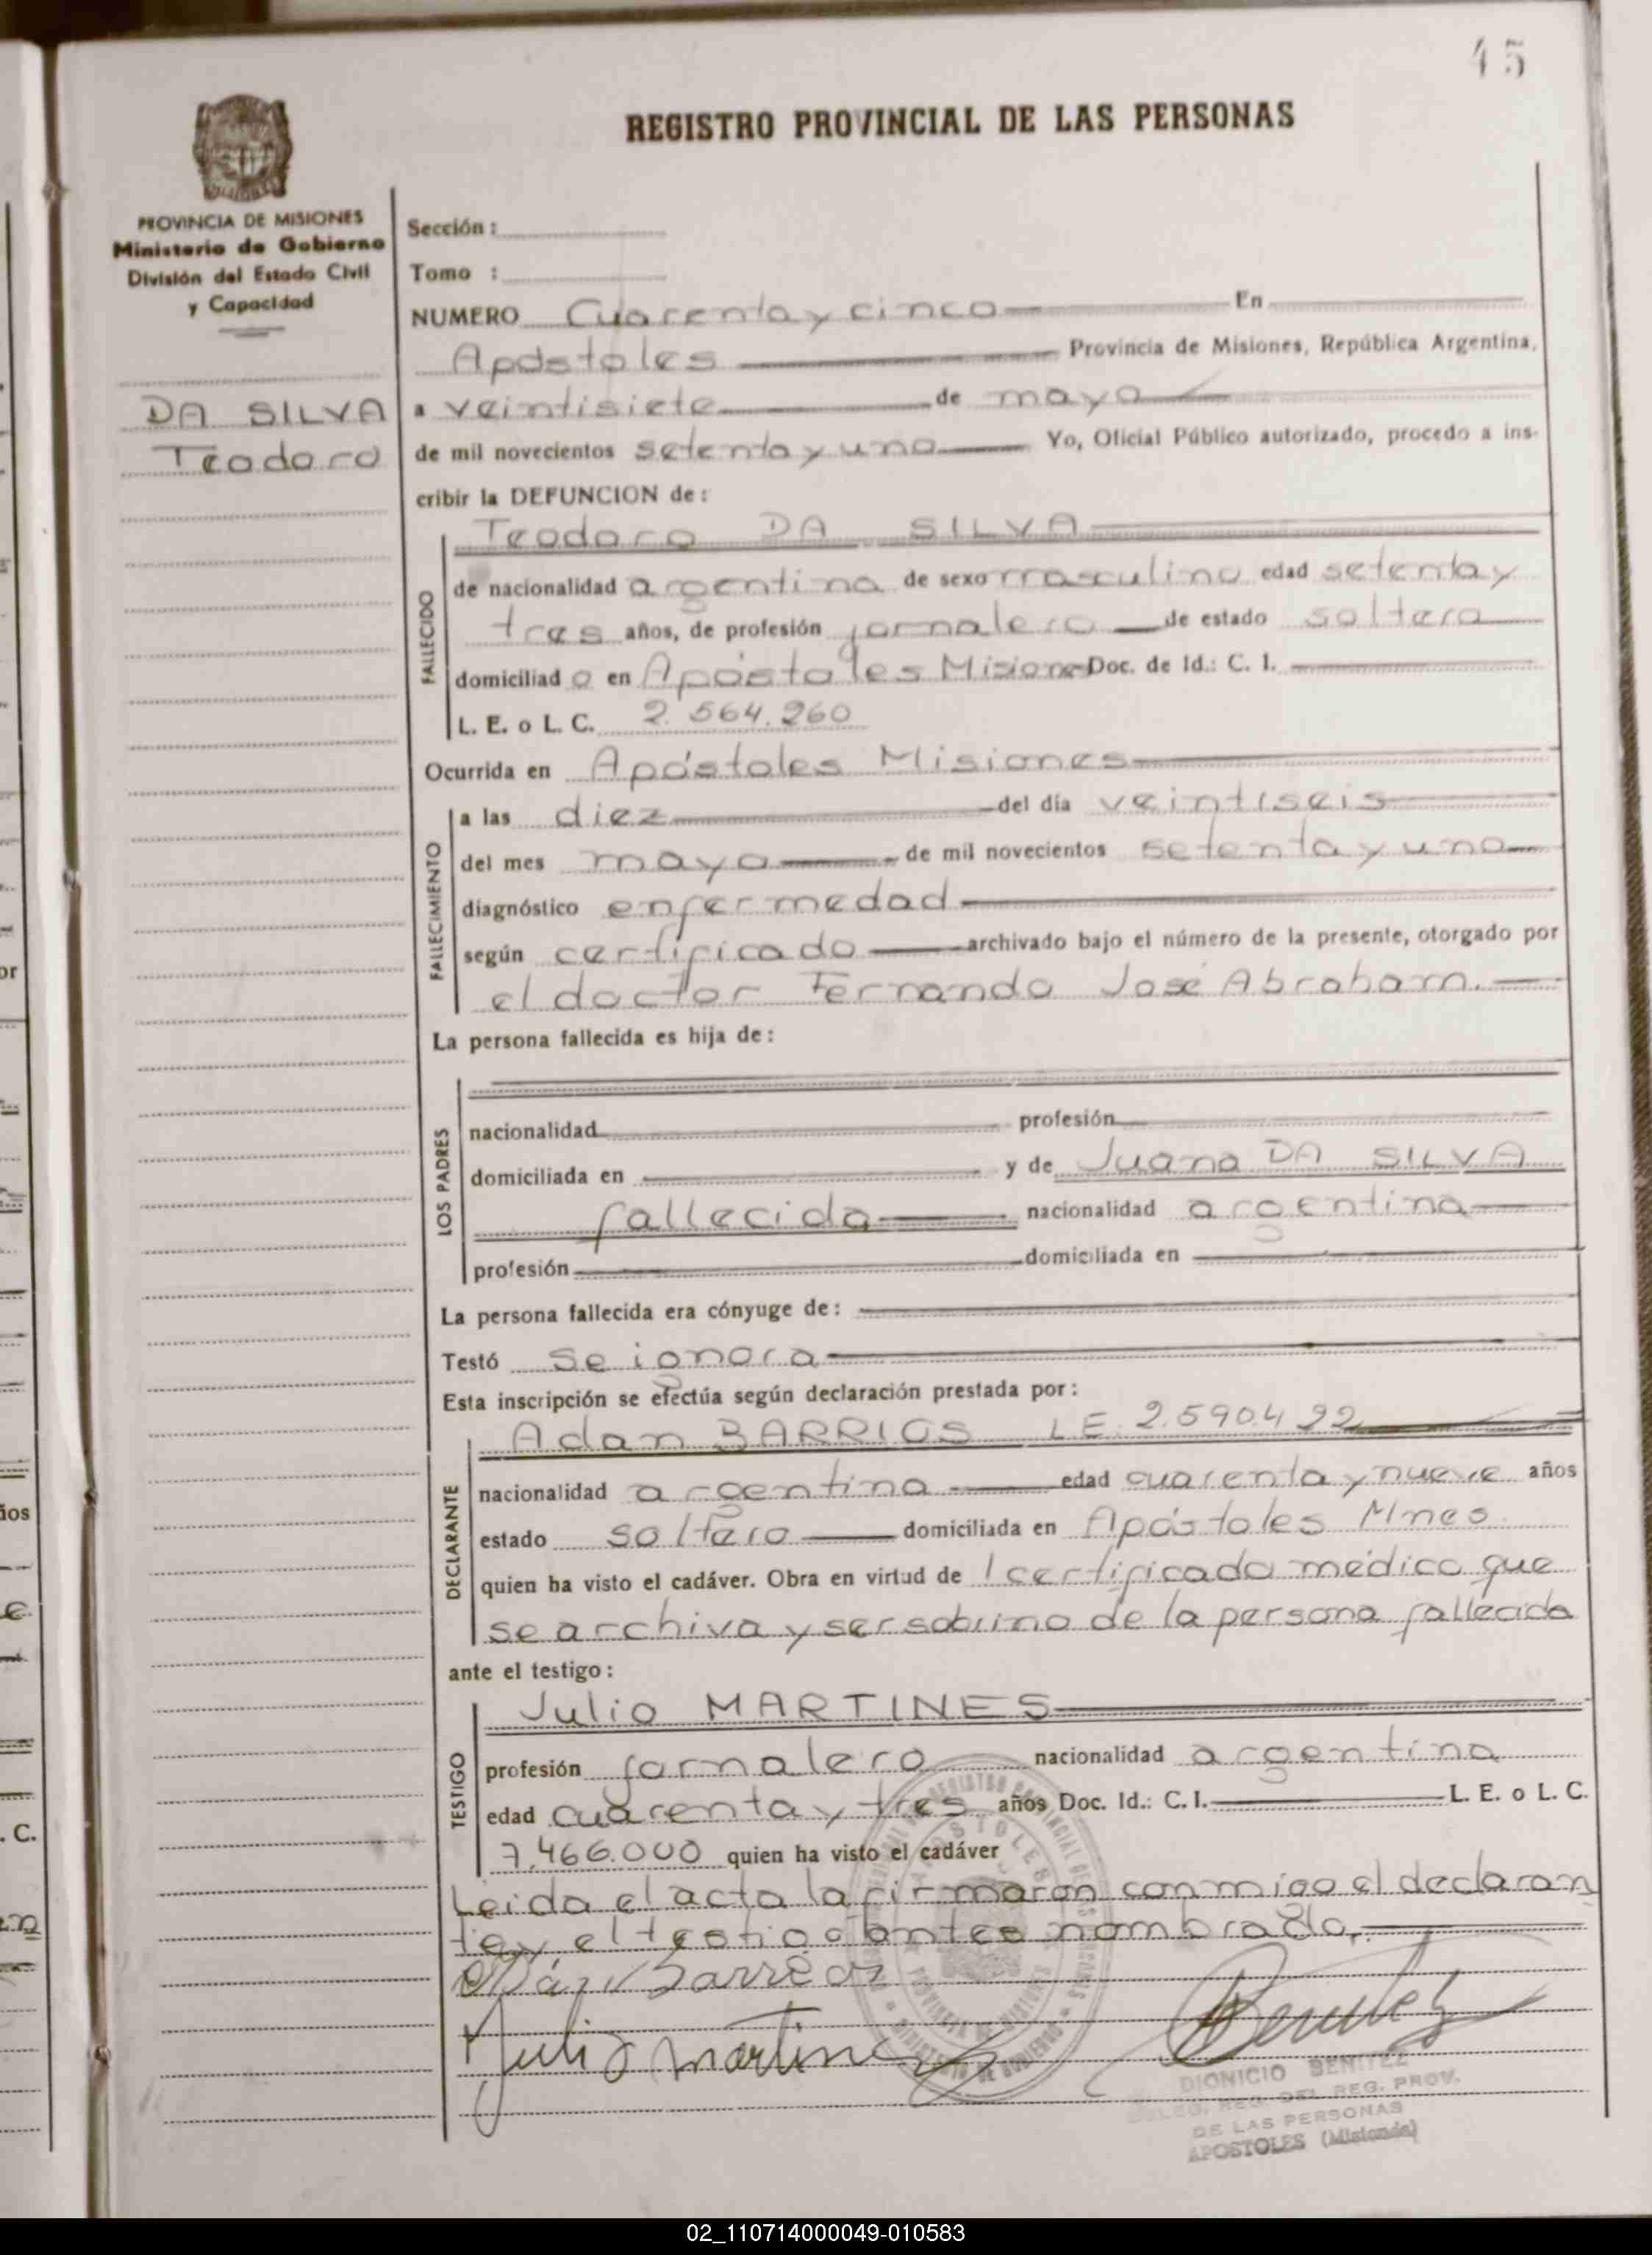 45
REGISTRO PROVINCIAL DE LAS PERSONAS
PROVINCIA DE MISIONES
Ministerio de Gobierno
División del Estado Civil
y Capacidad
DA SILVA
Teodoro
Sección:
Tomo :
NUMERO Cuarenta y cinco En
Apóstoles Provincia de Misiones, República Argentina,
a veintisiete de mayo
de mil novecientos setenta y uno Yo, Oficial Público autorizado, procedo a ins-
cribir la DEFUNCION de:
FALLECIDO
Teodoro DA SILVA
de nacionalidad argentina de sexo masculino edad setenta y
tres años, de profesión jornalero de estado soltero
domiciliado en Apóstoles Misiones Doc. de Id.: C. I.
L. E. o L. C. 2.564.260
Ocurrida en Apóstoles Misiones
FALLECIMIENTO
a las diez del día veintiseis
del mes mayo de mil novecientos setenta y uno
diagnóstico enfermedad
según certificado archivado bajo el número de la presente, otorgado por
el doctor Fernando José Abraham.
La persona fallecida es hija de:
LOS PADRES
nacionalidad profesión
domiciliada en y de Juana DA SILVA
fallecida nacionalidad argentina
profesión domiciliada en
La persona fallecida era cónyuge de:
Testó se ignora
Esta inscripción se efectúa según declaración prestada por:
DECLARANTE
Adan BARRIOS LE. 2.590.422
nacionalidad argentina edad cuarenta y nueve años
estado soltero domiciliada en Apóstoles Mnes
quien ha visto el cadáver. Obra en virtud de l certificado médico que
se archiva y ser sobrino de la persona fallecida
ante el testigo:
TESTIGO
Julio MARTINES
profesión jornalero nacionalidad argentina
edad cuarenta y tres años Doc. Id.: C. I. L. E. o L. C.
7.466.000 quien ha visto el cadáver
Leida el acta la firmaron conmigo el declaran
te y el testigo antes nombrado.
Adán Barrios
Julio Martinez
Benitez
DIONICIO BENITEZ
DELEG. REG. DEL REG. PROV.
DE LAS PERSONAS
APOSTOLES (Misiones)
02_110714000049-010583